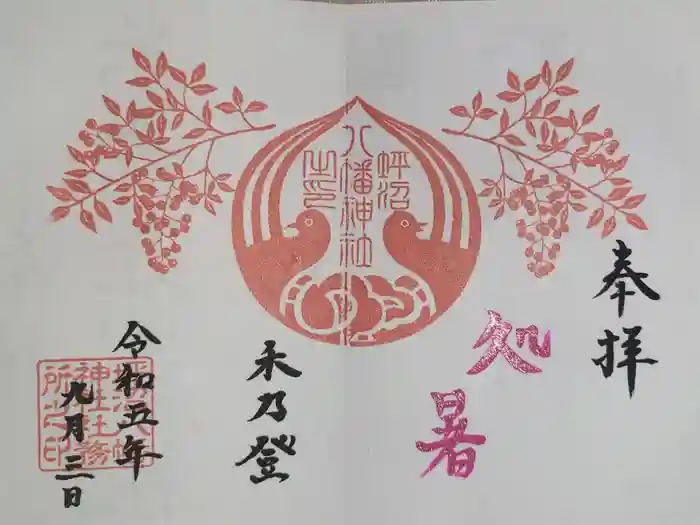 奉拝
処暑
蛘沼
八幡神社
之印
禾乃登
令和五年
九月三日
神社社務
所之印